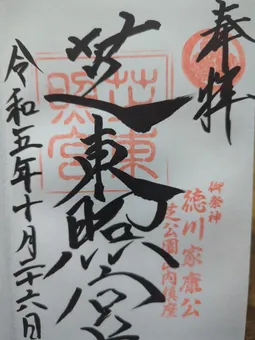 奉拝
御祭神
徳川家康公
芝公園山内鎮座
芝東照宮
芝東照宮
令和五年十月二十六日